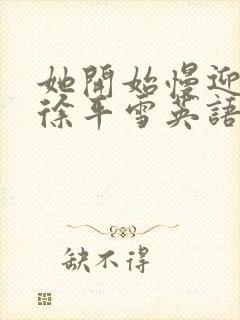 她開始慢迎
徐平雪英語
缺不得